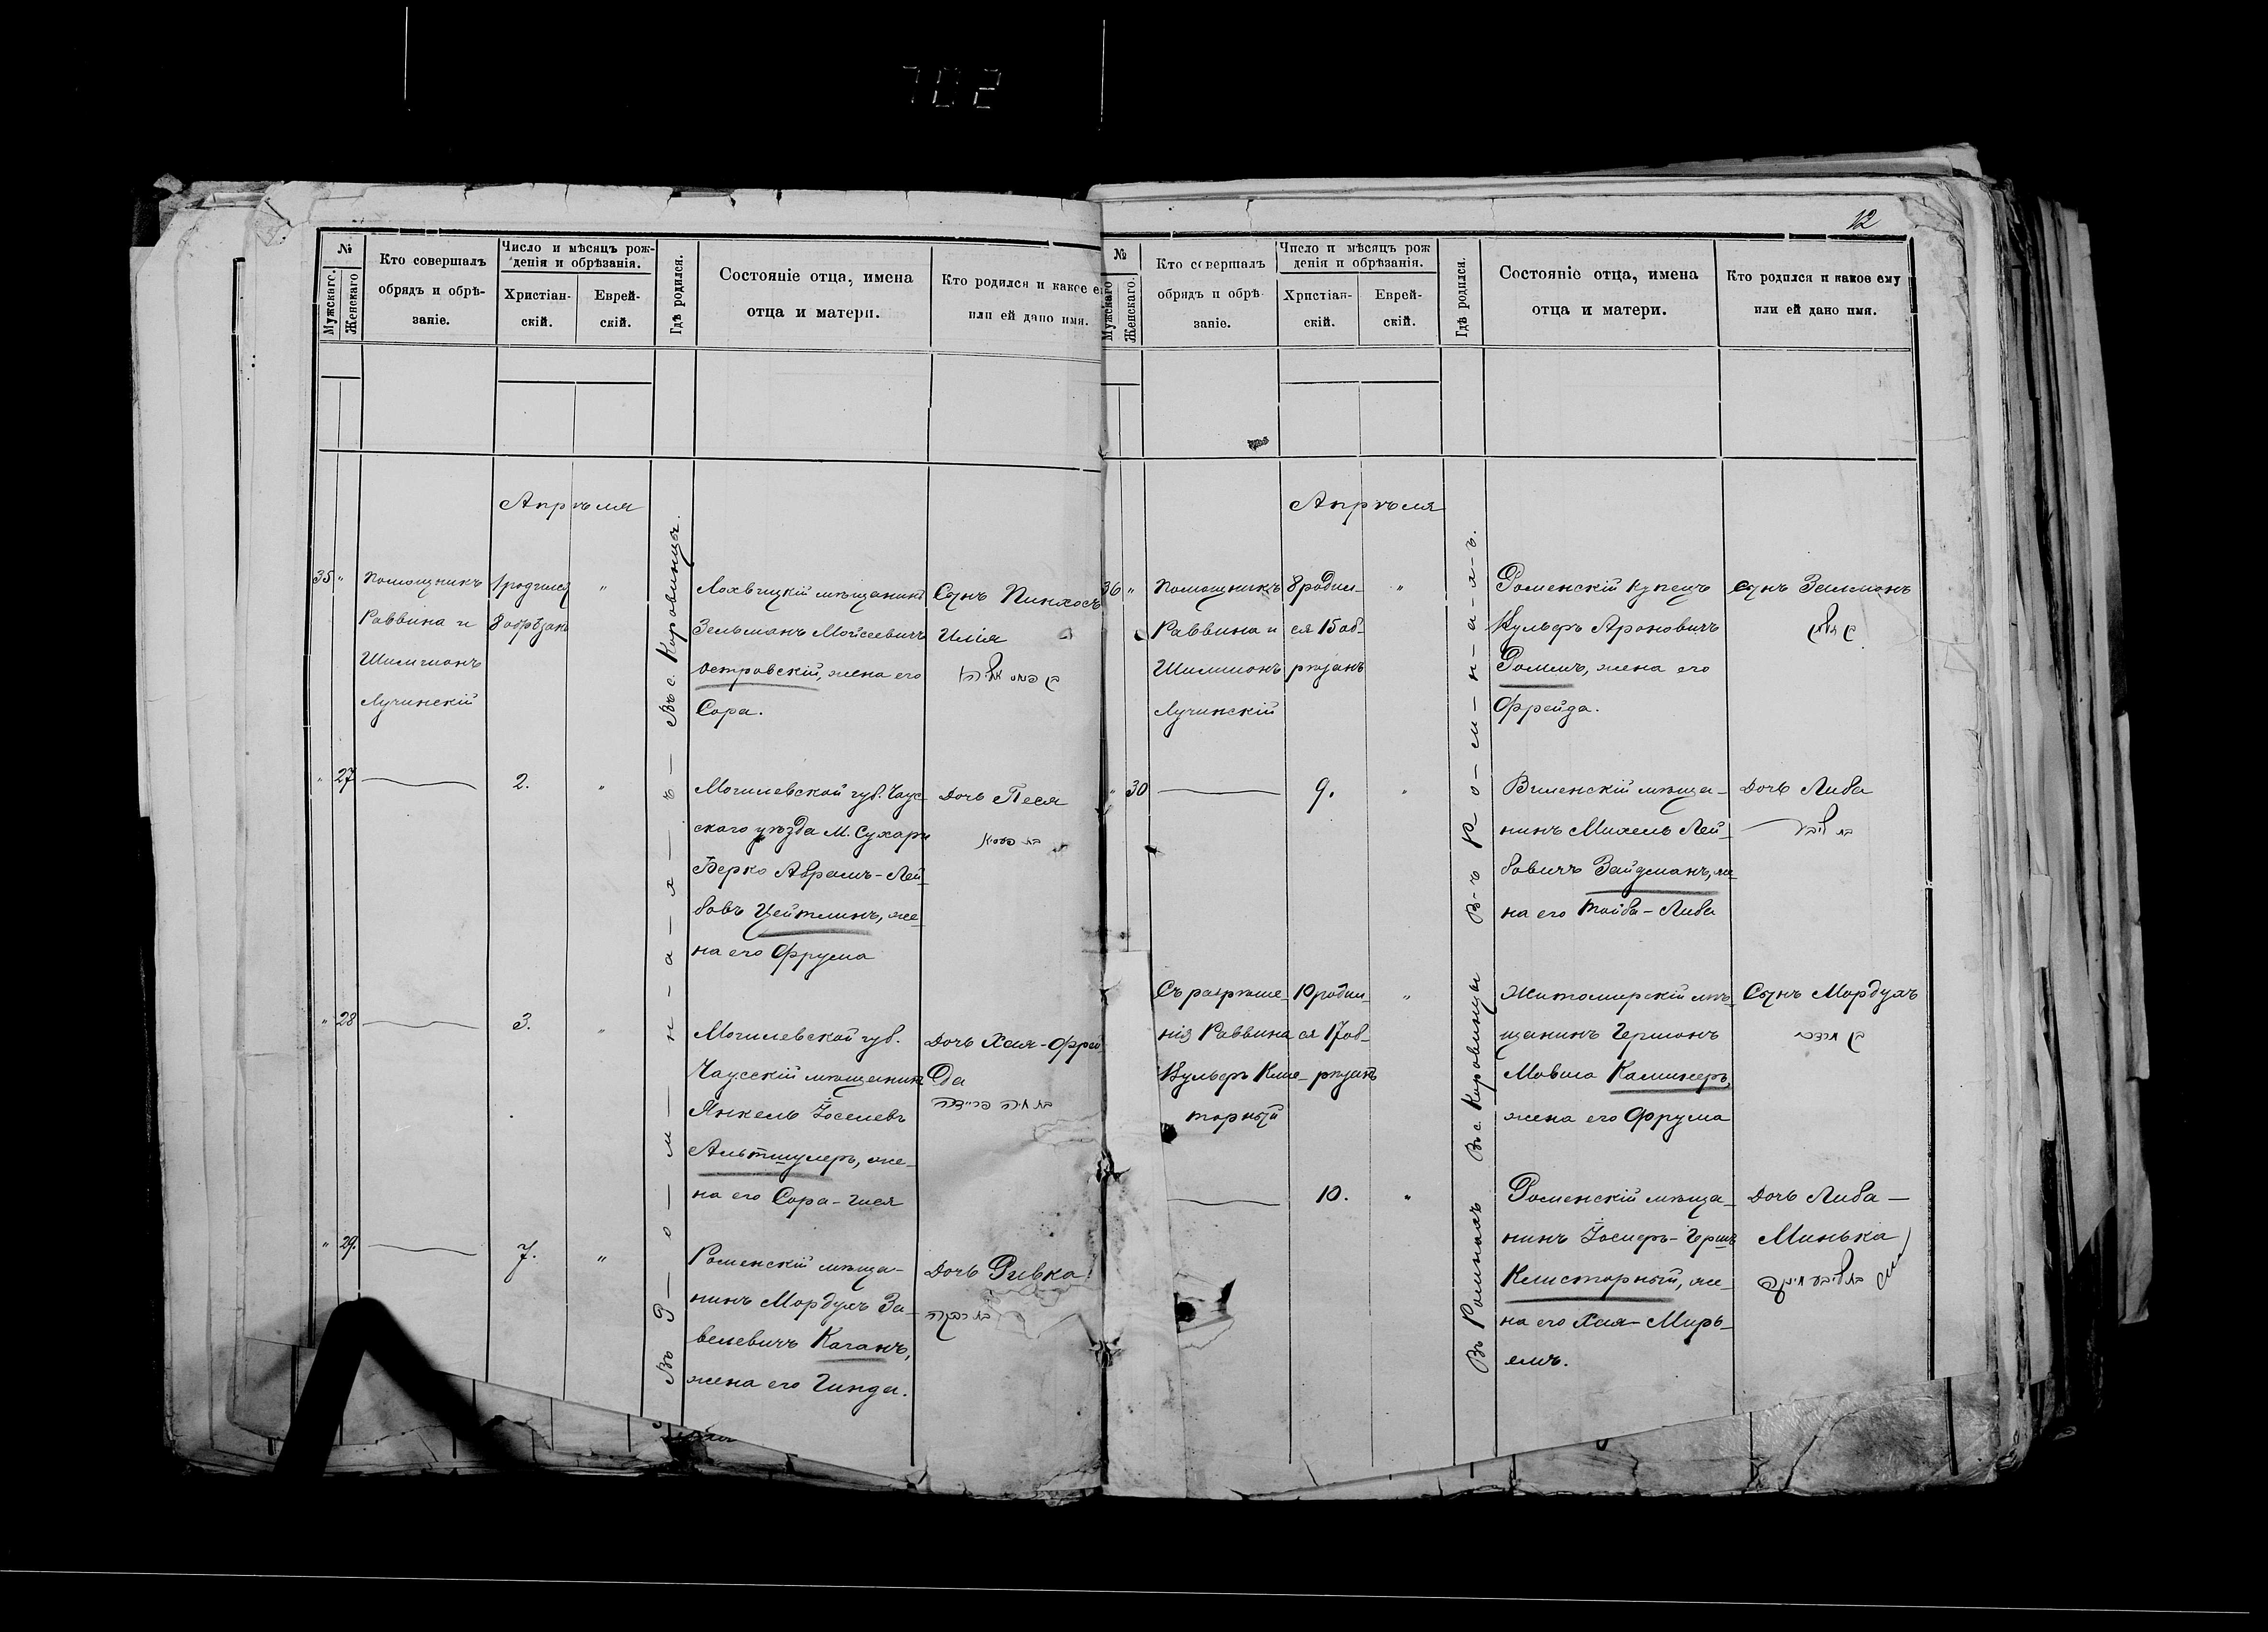 702
№
Мужскаго.
Женскаго
Кто совершалъ
обрядъ и обрѣ-
заніе.
Число и мѣсяцъ рож-
денія и обрѣзанія.
Христіан-
скій.
Еврей-
скій.
Гдѣ родился.
Состояніе отца, имена
отца и матери.
Кто родился и какое е
или ей дано имя.
Апрѣля
35 "
Помощникъ
Раввина и
Шлиміонъ
Лучинскій
1 родился
8 обрѣзанъ
"
Въ с. Коровинцы.
Лохвицкій мѣщанинъ
Зельманъ Мойсеевичъ
Островскій, жена его
Сора.
Сынъ Пинхосъ
Илія
" 27
2.
"
Могилевской губ. Чаус-
скаго уѣзда М. Сухари
Берко Абрамъ-Лей-
бовъ Цейтлинъ, же-
на его Фрума
Дочь Песя
בת פעסיא
" 28
3.
"
Могилевской губ.
Чаусскій мѣщанинъ
Янкель Іоселевъ
Альтшулеръ, же-
на его Сора-Гися
Дочь Хая-Фрей
да
בת חיה פריידה
" 29.
7.
"
Роменскій мѣща-
нинъ Мордухъ За-
велевичъ Каганъ,
жена его Гинда.
Дочь Ривка
בת רבקה
Въ Р-о-м-н-а-х-ъ
12
№
Мужскаго
Женскаго.
Кто совершалъ
обрядъ и обрѣ-
заніе.
Число и мѣсяцъ рож
денія и обрѣзанія.
Христіан-
скій.
Еврей-
скій.
Гдѣ родился.
Состояніе отца, имена
отца и матери.
Кто родился и какое ему
или ей дано имя.
Апрѣля
36 "
Помощникъ
Раввина и
Шлиміонъ
Лучинскій
8 родил-
ся 15 об-
рѣзанъ
"
В-ъ Р-о-м-н-а-х-ъ.
Роменскій купецъ
Вульфъ Ароновичъ
Роммъ, жена его
Фрейда.
Сынъ Залманъ
בן זלמן
" 30
9.
"
Виленскій мѣща-
нинъ Михель Лей-
бовичъ Зайдманъ, же-
на его Тойба-Либа
Дочь Либа
בת ליבע
Съ разрѣше-
нія Раввина
Вульфъ Клис-
торный
10 родил-
ся 17 об-
рѣзанъ
"
Въ с. Коровинцы
Житомирскій мѣ-
щанинъ Германъ
Мовша Каминеръ,
жена его Фрума
Сынъ Мордухъ
בן מרדכי
10.
"
Въ Ромнахъ
Роменскій мѣща-
нинъ Іосифъ-Гершъ
Клисторный, же-
на его Хая-Мирь-
емъ.
Дочь Либа-
Минька